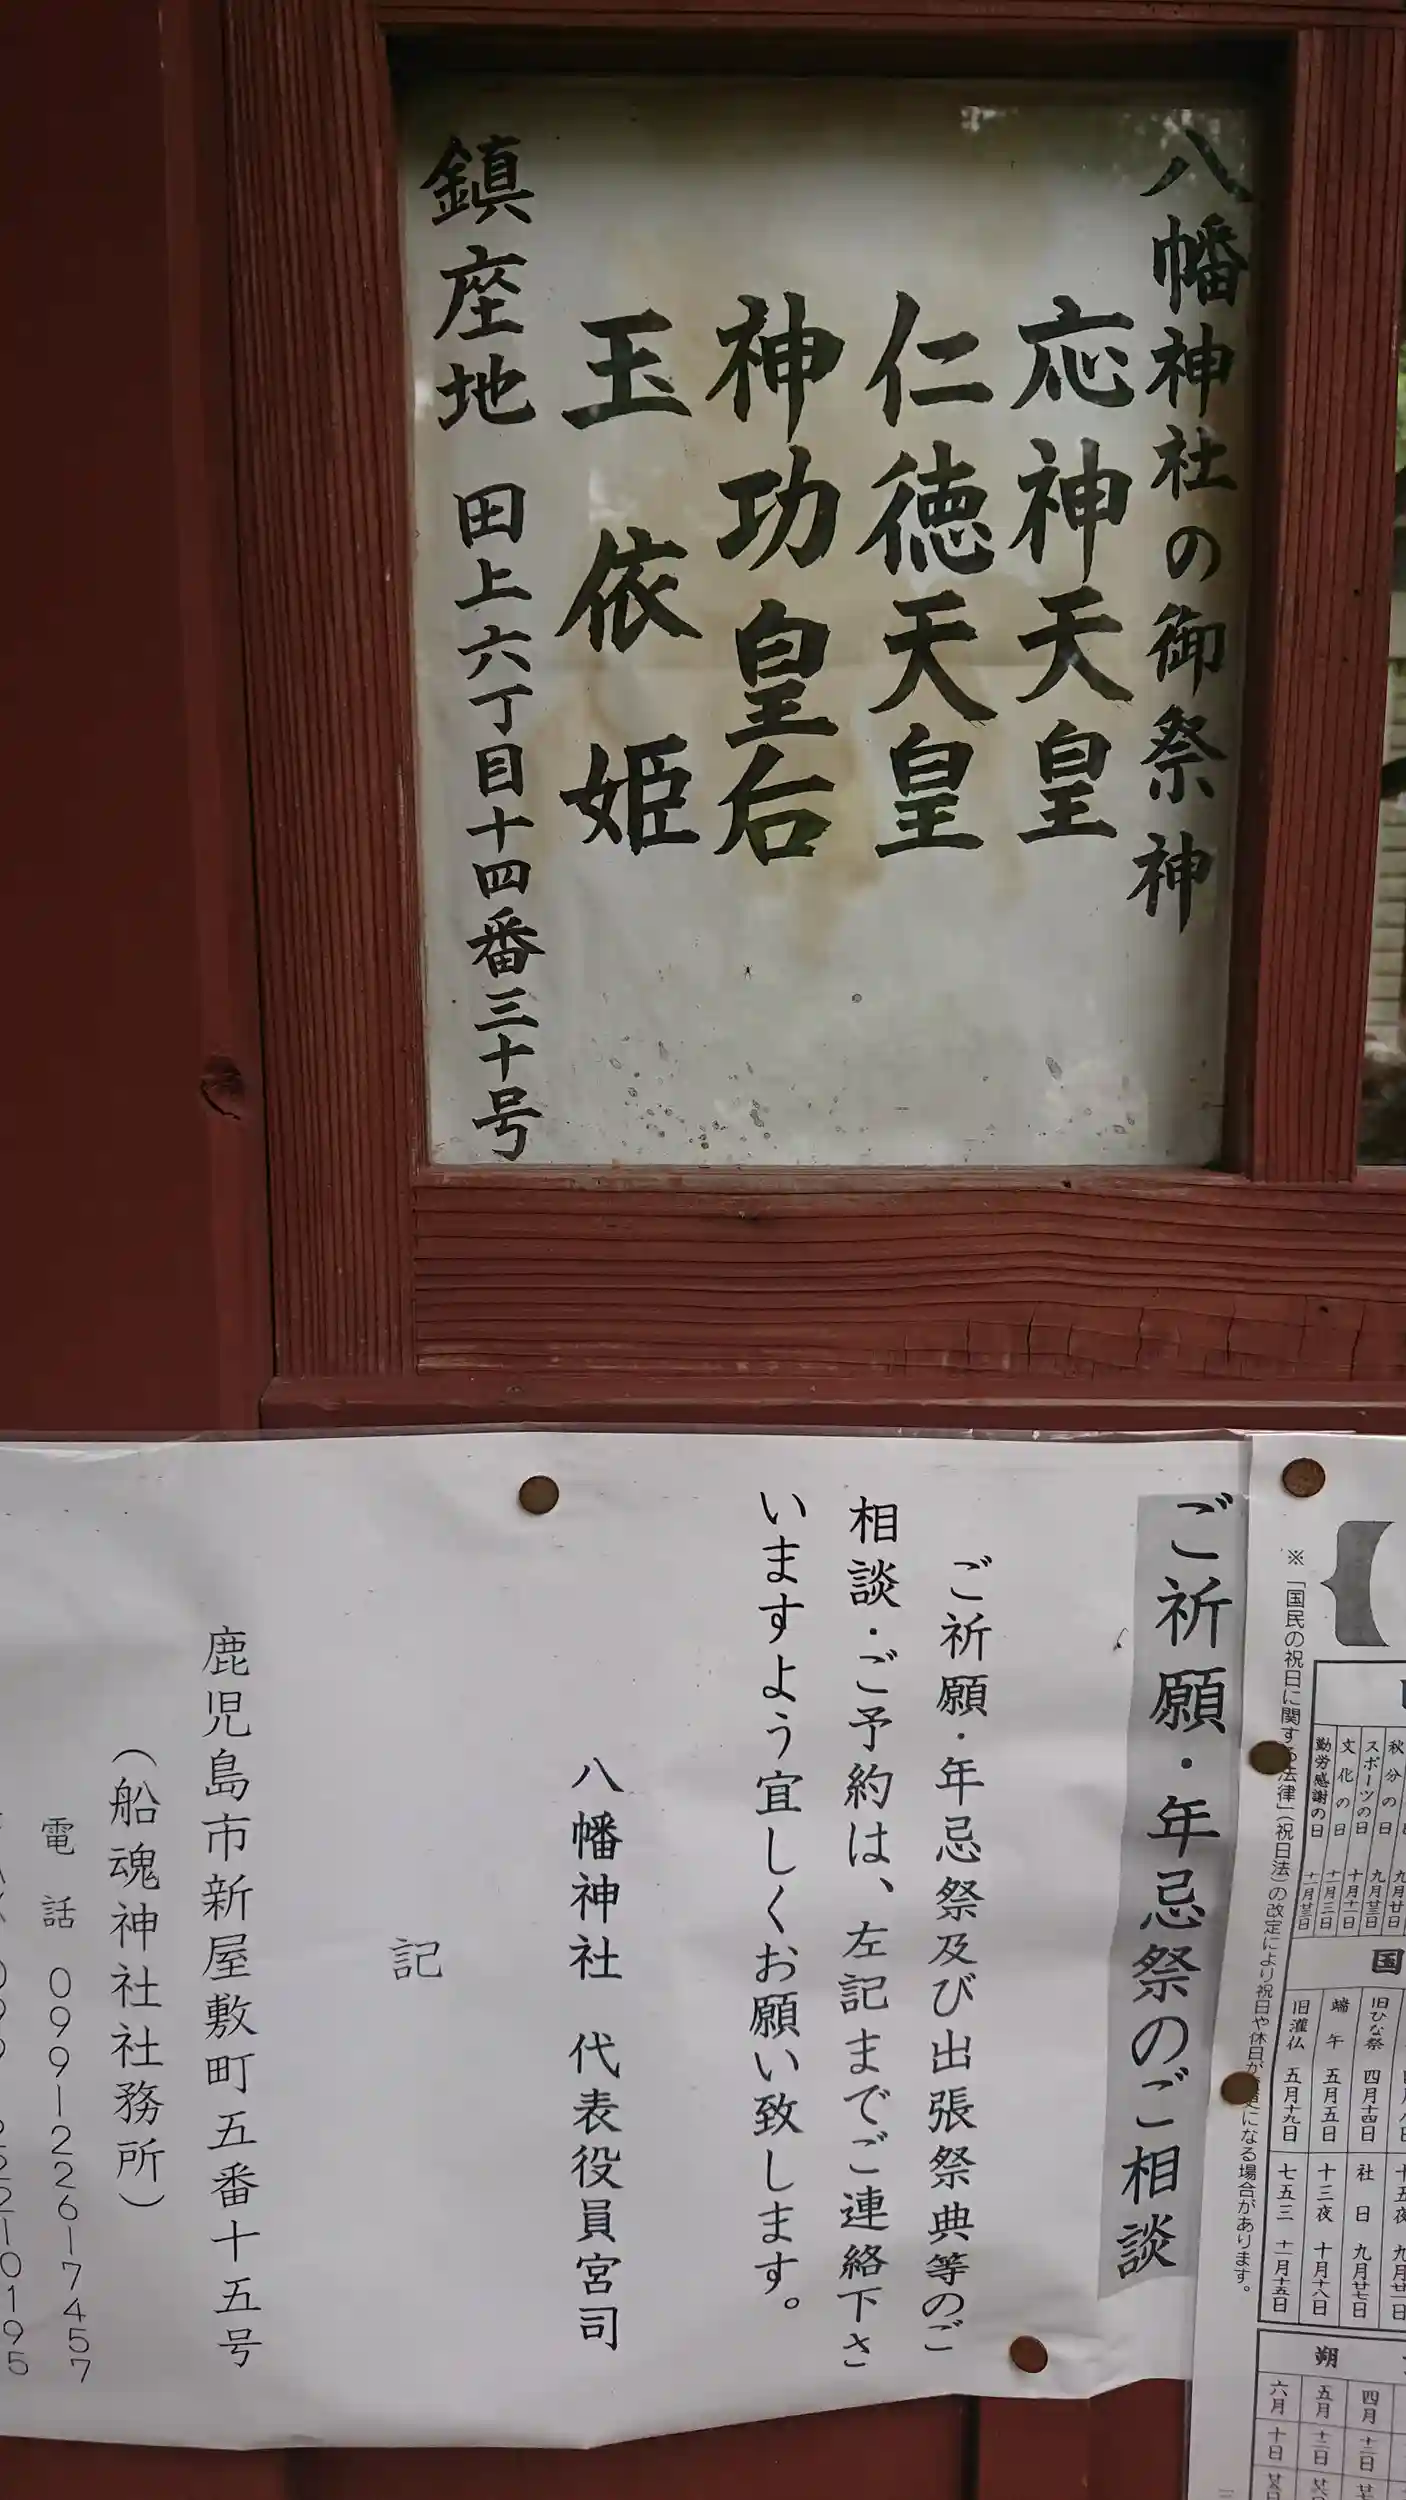 八幡神社の御祭神
応神天皇
仁徳天皇
神功皇后
玉依姫
鎮座地 田上六丁目十四番三十号
ご祈願・年忌祭のご相談
ご祈願・年忌祭及び出張祭典等のご
相談・ご予約は、左記までご連絡下さ
いますよう宜しくお願い致します。
八幡神社 代表役員宮司
記
鹿児島市新屋敷町五番十五号
(船魂神社社務所)
電話 099-226-7457
※「国民の祝日に関する法律」(祝日法)の改定により祝日や休日が変更になる場合があります。
秋分の日 九月廿三日
スポーツの日 十月十一日
文化の日 十一月三日
勤労感謝の日 十一月廿三日
国
旧ひな祭 四月十四日
端午 五月五日
旧灌仏 五月十九日
社日 九月廿七日
十三夜 十月十八日
七五三 十一月十五日
朔
四月 十二日
五月 十二日
六月 十日